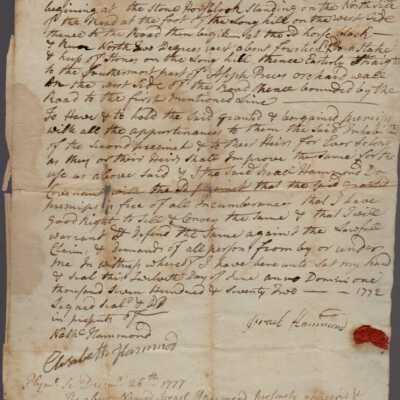 beginning at the Stone horse block Standing on the North Side
of the Road at the foot of the Long hill on the west Side
thence to the Road then begin at the sd horse block
& Run North two Degrees west about four to a Stake
& heap of Stones on the Long hill thence Easterly Straight
to the Southermost part of Asaph Prices orchard wall
on the west Side of the Road thence bounded by the
Road to the first mentioned Line
To Have & to hold the Said Ground & bargained premises
with all the appurtenances to them the Said
of the Second precinct & to their Heirs for Ever So long
as they or their Heirs Shall Improve the Same for the
use as above Said & I the Said Israel Hammond Do
Covenant with the Sd precinct that the Said granted
premises is free of all Incumbrances that I have
Good Right to Sell & Convey the Same & that I will
warrant & Defend the Same against the Lawful
Claims & demands of all persons from by or under
me In witness whereof I have hereunto Set my hand
& Seal this Twelveth Day of June anno Domini one
thousand Seven Hundred & Seventy Two — — 1772
Signed Seald & DD
in presents of
Nathl Hammond
Israel Hammond
Elisabeth Hammond
Plymo Ss Decemr 26th 1777